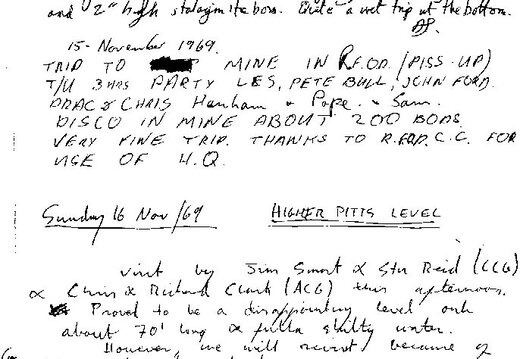 and 2" high stalagmite boss. Quite a wet trip at the bottom.
15- November 1969.
TRIP TO MINE IN R.FOD. (PISS-UP)
T/U 3 HRS PARTY LES, PETE BULL, JOHN FORD.
DRAC & CHRIS Hanham & Pope. & Sam.
DISCO IN MINE ABOUT 200 BODS
VERY FINE TRIP. THANKS TO R.FOD. C.C. FOR
USE OF H.Q.
Sunday 16 Nov/69 HIGHER PITTS LEVEL
visit by Jim Smart & Stu Reid (CCG)
& Chris & Richard Clark (ACG) this afternoon.
Proved to be a disappointing level only
about 70' long & full of water.
However, we will revisit because of